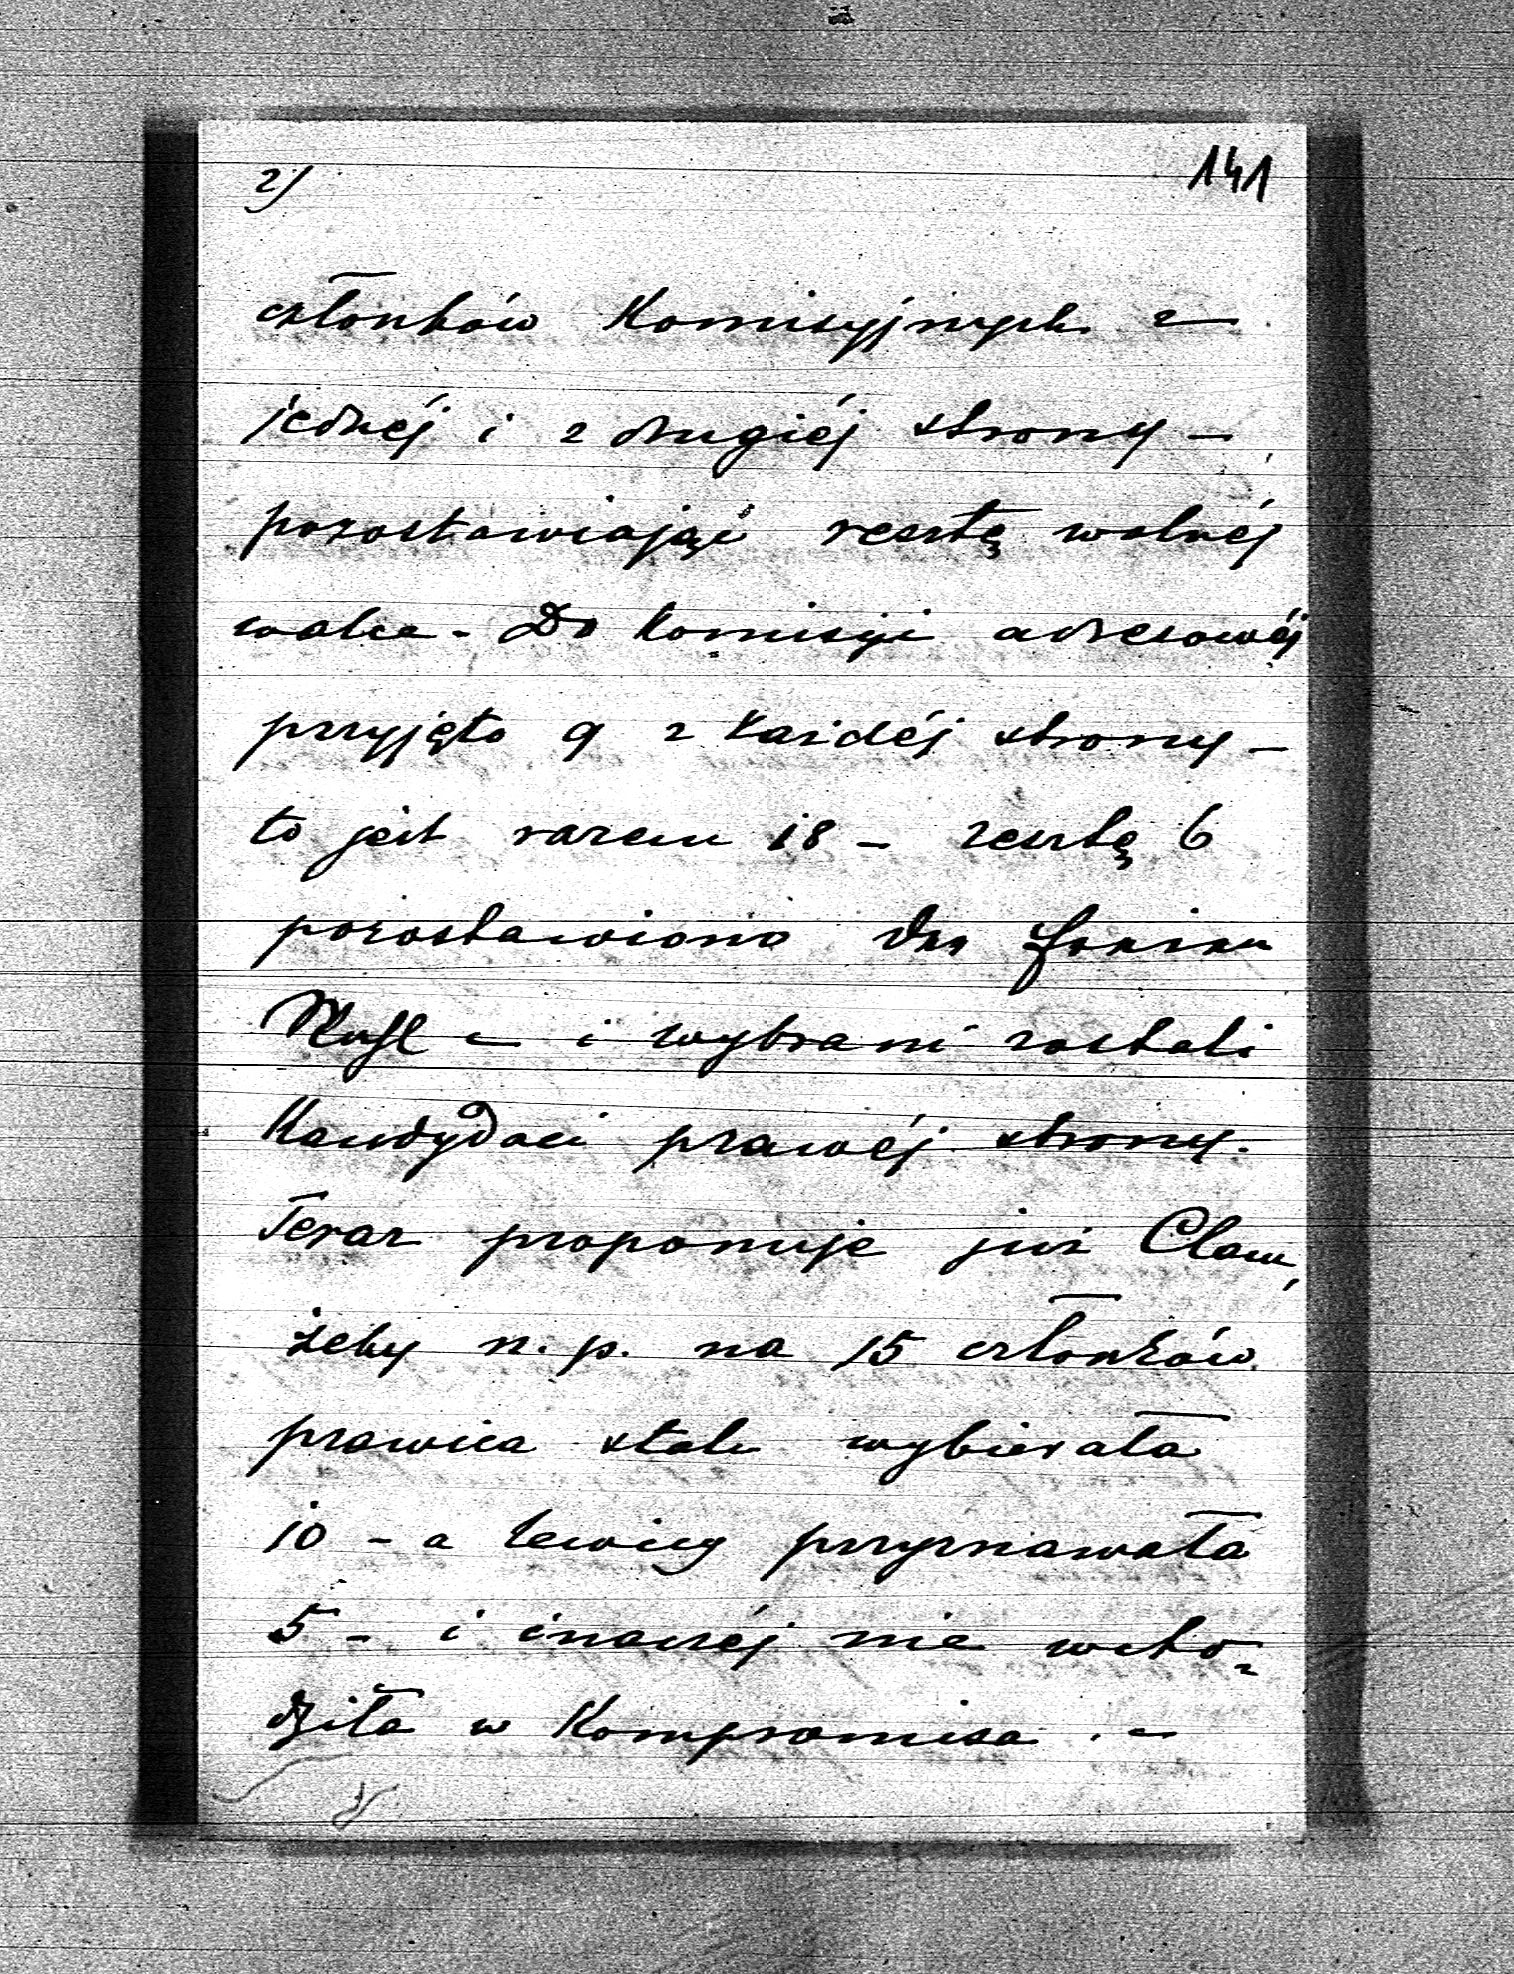 2)
141
członków Komisyjnych z
jednéj i z drugiéj strony –
pozostawiając resztę wolnéj
walce – Do Komisyi adresowéj
przyjęto 9 z każdéj strony –
to jest razem 18 – resztę 6
pozostawiono der freien
Wahl – i wybrani zostali
Kandydaci prawéj strony.
Teraz proponuje już Clam,
żeby n. p. na 15 członków
prawica stale wybierała
10 – a lewicy przyznawała
5 – i inaczéj nie wcho-
dziła w Kompromisa. –